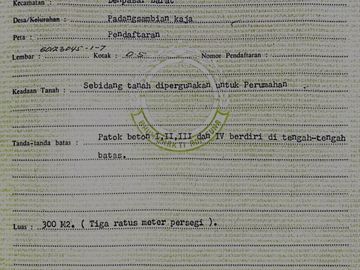 Kecamatan : Denpasar Barat
Desa/Kelurahan : Padangsambian kaja
Peta : Pendaftaran
Lembar : Kotak : 05 Nomor Pendaftaran :
Keadaan Tanah : Sebidang tanah dipergunakan untuk Perumahan
Tanda-tanda batas : Patok beton I,II,III dan IV berdiri di tengah-tengah
batas.
Luas : 300 M2. ( Tiga ratus meter persegi ).